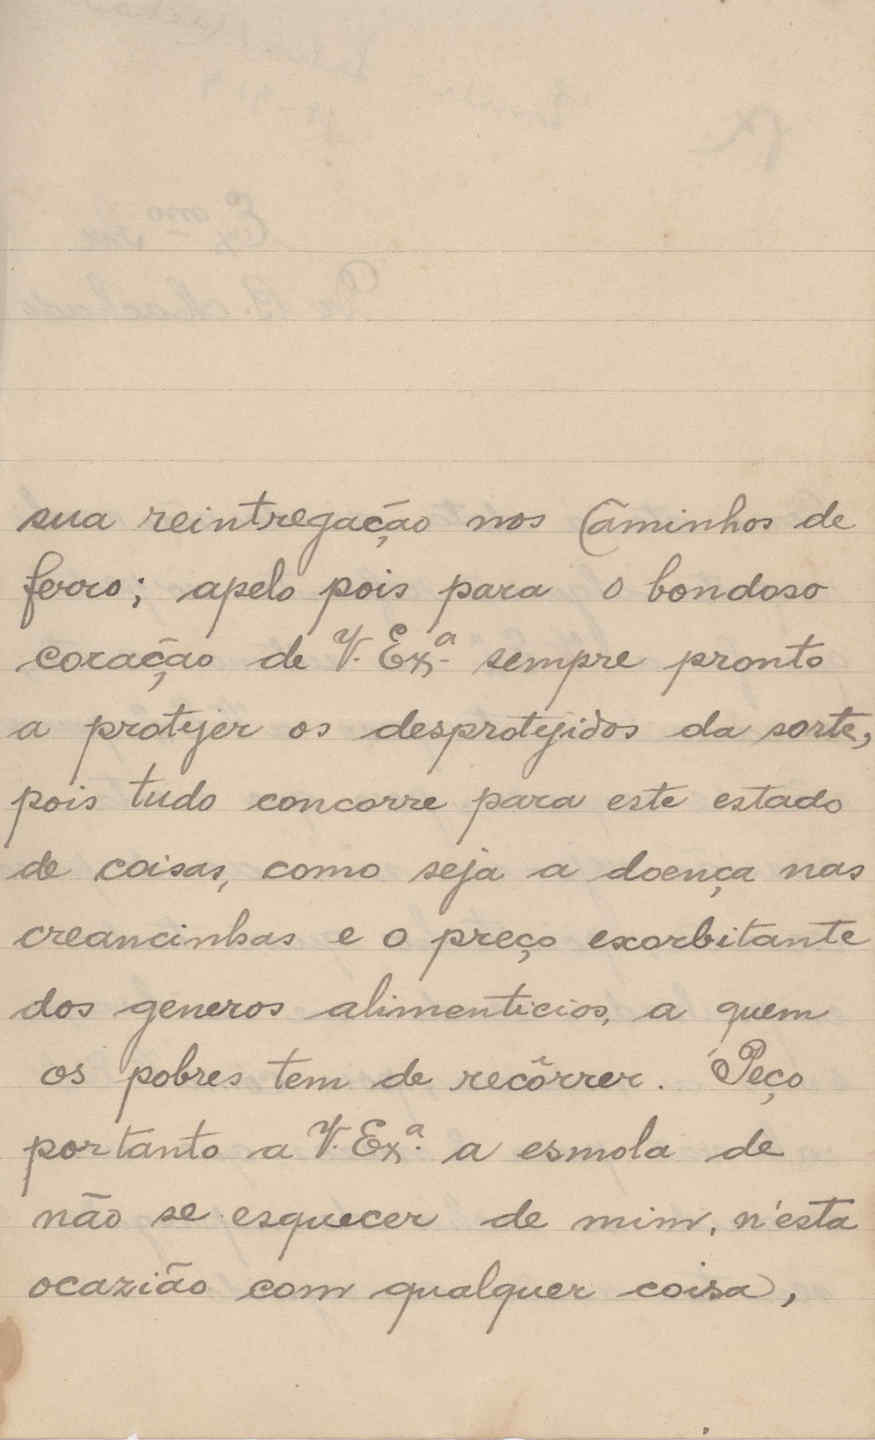 sua reintregação nos Cāminhos de
ferro; apelo pois para o bondoso
coração de V. Exª. sempre pronto
a protejer os desprotejidos da sorte,
pois tudo concorre para este estado
de coisas, como seja a doença nas
creancinhas e o preço exorbitante
dos generos alimenticios, a quem
os pobres tem de recôrrer. Peço
portanto a V. Exª. a esmola de
não se esquecer de mim, n'esta
ocazião com qualquer coisa,